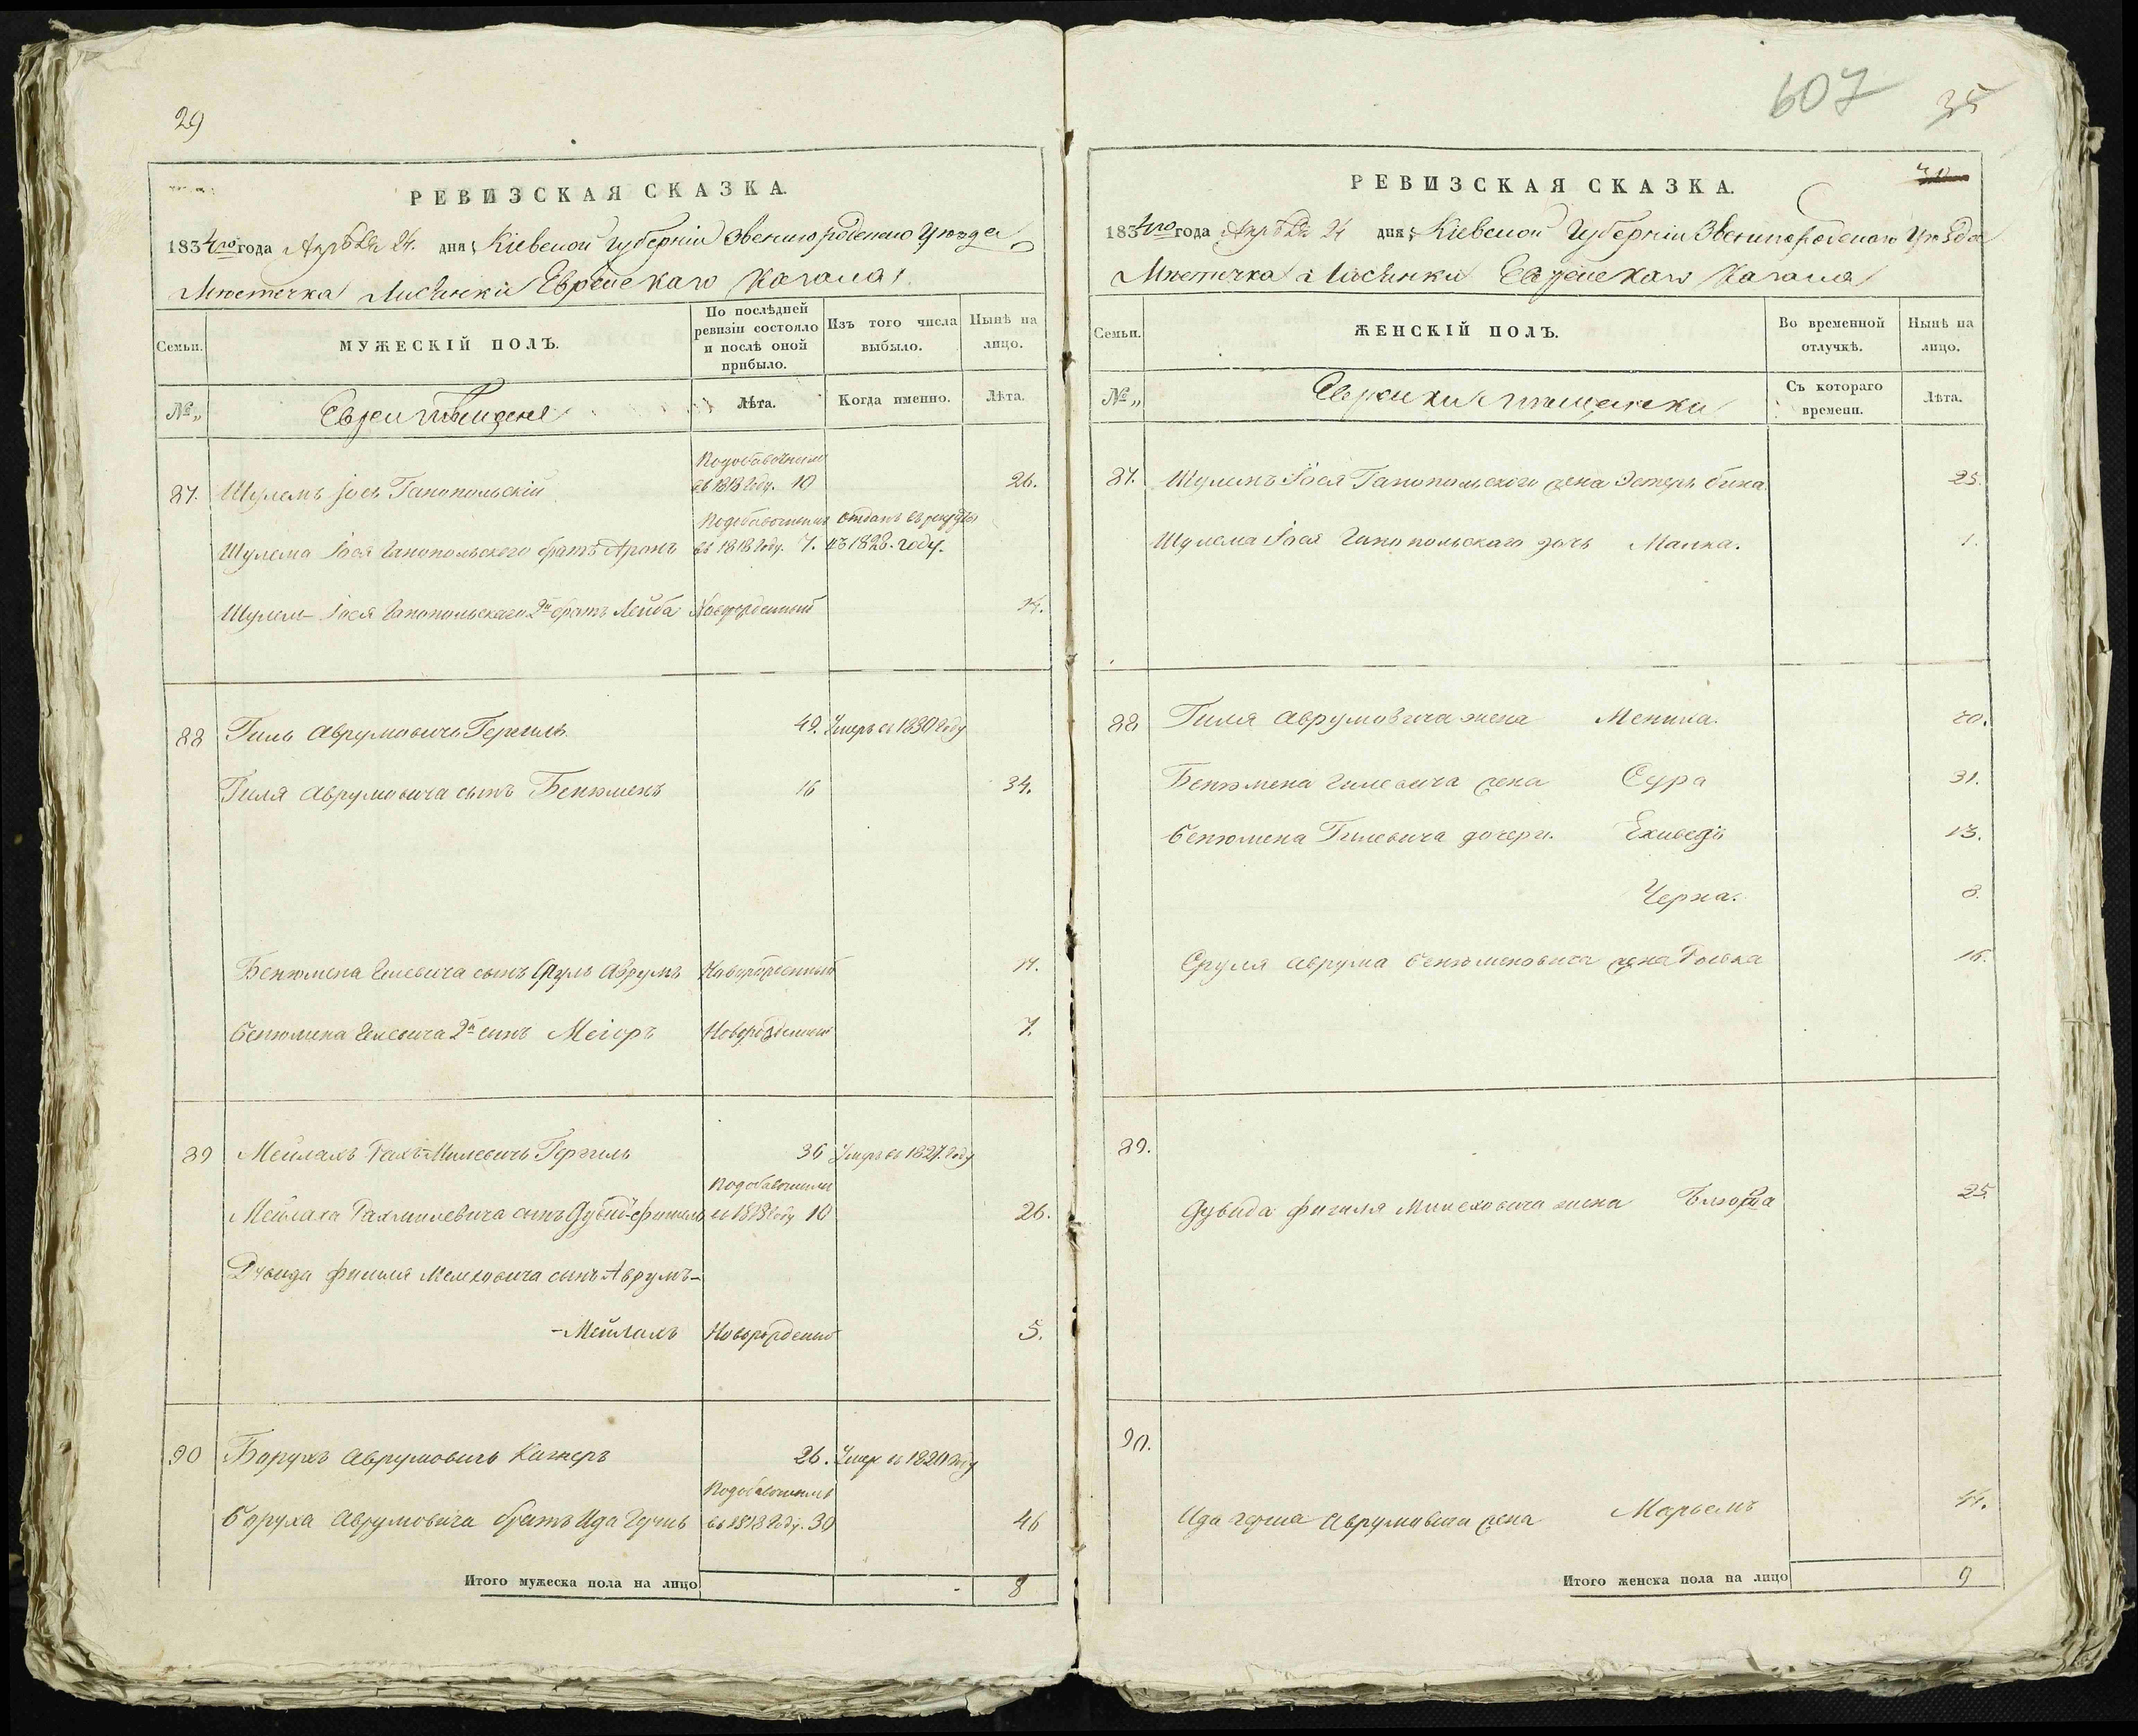 29
РЕВИЗСКАЯ СКАЗКА.
1834го года Апрѣля 24. дня Кіевской Губерніи Звенигородскаго Уѣзда
Мѣстечка Лисянки Еврейскаго Кагала
Семьи.
МУЖЕСКІЙ ПОЛЪ.
По послѣдней ревизіи состояло и послѣ оной прибыло.
Изъ того числа выбыло.
Нынѣ на лицо.
№
Евреи Мѣщане
Лѣта.
Когда именно.
Лѣта.
Подобавочными
87. Шулемъ Іось Ганопольскій въ 1818 году. 10 26.
Подобавочнымъ Отданъ въ рекруты
Шулема Іося Ганопольскаго братъ Аронъ въ 1818 году. 7. въ 1828. году.
Шулем- Іося Ганопольскаго 2й братъ Лейба Новорожденный 14.
88 Гиль Аврумовичъ Гергель 49. Умеръ въ 1830 году
Гиля Аврумовича сынъ Бенюменъ 16 34.
Бенюмена Гилевича сынъ Сруль Аврумъ Новорожденный 17.
Бенюмена Гилевича 2й сынъ Меіоръ Новорожденный 7.
89 Мейлахъ Рахмилевичъ Гергель 36 Умеръ въ 1827. году
Подобавочными
Мейлаха Рахмилевича сынъ Дувид-Фишель въ 1818 году 10 26.
Дувида Фишеля Мелеховича сынъ Аврумъ-
-Мейлахъ Новорожденный 5.
90 Борухъ Аврумовичъ 26. Умеръ въ 1820 году
Подобавочнымъ
Боруха Аврумовича братъ Ида Гершь въ 1818 году. 30 46
Итого мужеска пола на лицо 8
607
35
РЕВИЗСКАЯ СКАЗКА.
1834го года Апрѣля 24 дня Кіевской Губерніи Звенигородскаго Уѣзда
Мѣстечка Лисянки Еврейскаго Кагала
Семьи.
ЖЕНСКІЙ ПОЛЪ.
Во временной отлучкѣ.
Нынѣ на лицо.
№
Еврейки Мѣщанки
Съ котораго времени.
Лѣта.
87. Шулемъ Іося Ганопольскаго жена Эстеръ 25.
Шулема Іося Ганопольскаго дочь Малка. 1.
88 Гиля Аврумовича жена 50.
Бенюмена Гилевича жена Сура 31.
Бенюмена Гилевича дочери. 13.
Черна. 8.
Сруля Аврума Бенюменовича жена 16.
89.
Дувида Фишеля Мелеховича жена 25
90.
Ида Герша Аврумовича жена Марьемъ 44.
Итого женска пола на лицо 9